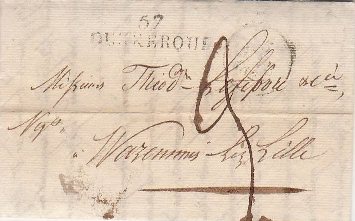 57
DUNKERQUE
Messieurs Théodre Lefebvre & Cie
Négts
à Wazemmes lez Lille
3